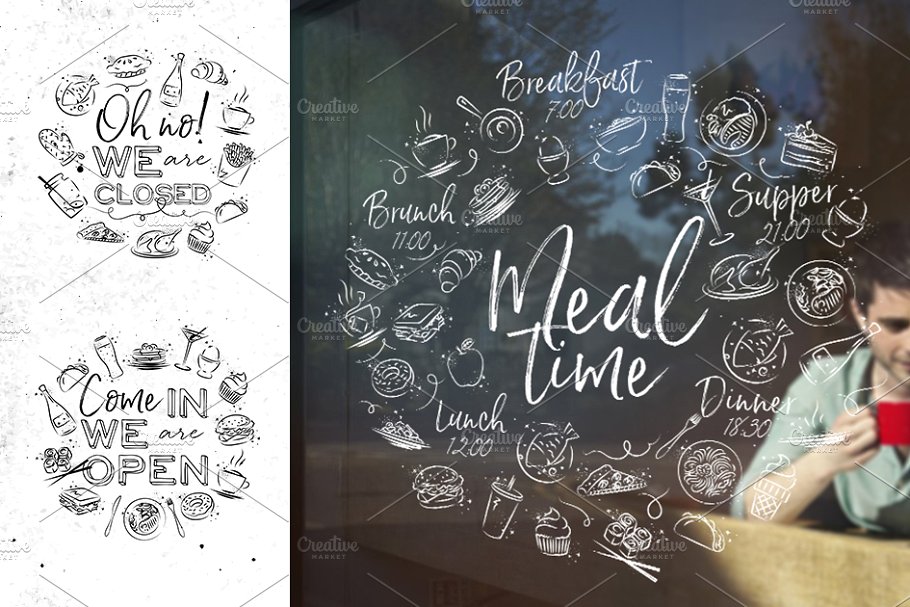 Oh no!
WE are
CLOSED
Come IN
WE are
OPEN
Breakfast
7:00
Brunch
11:00
Supper
21:00
Meal
time
Lunch
12:00
Dinner
18:30
Creative
MARKET
Creative
MARKET
Creative
MARKET
Creative
MARKET
Creative
MARKET
Creative
MARKET
Creative
MARKET
Creative
MARKET
Creative
MARKET
Creative
MARKET